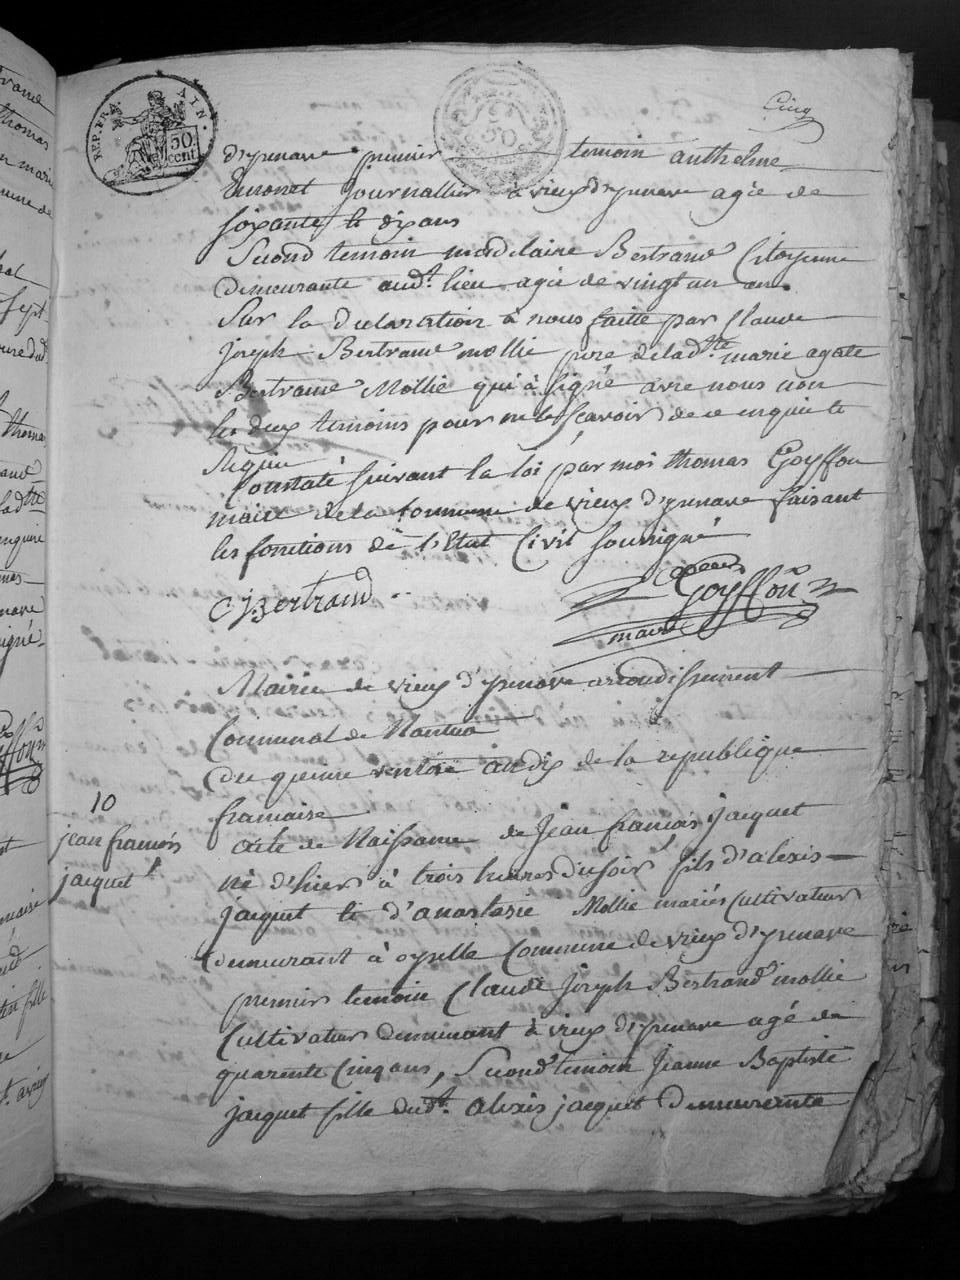 REP. FRA. AIN.
50. cent.
50
Cinq
d'yzenave premier temoin anthelme
Emonet journallier a vieux d'yzenave agée de
soixante et dix ans
Second temoin madelaine Bertrand Citoyenne
demeurante aud.t lieu agée de vingt un ans
Sur la declaration à nous faitte par Claude
joseph Bertrand mollie pere de lad.tte marie agate
Bertrand Mollie qui à signé avec nous non
les deux temoins pour ne le scavoir de ce enquis et
requis
Constaté suivant la loi par moi thomas Goyffon
maire de la commune de vieux d'yzenave faisant
les fonctions de l'Etat Civil soussigné
C j Bertrand
Goyffon
maire
Mairie de vieux d'yzenave arrondissement
Communal de Nantua
Du quinze ventose an dix de la republique
francaise
10
jean francois
jacquet
acte de Naissance de jean francois jacquet
né d'hier à trois heures du soir fils d'alexis
jacquet et d'anastasie Mollie mariés Cultivateurs
demeurant à oyselle Commune de vieux d'yzenave
premier temoin Claude joseph Bertrand mollie
Cultivateur demeurant à vieux d'yzenave agé de
quarente Cinq ans, Second temoin Jeanne Baptiste
jacquet fille dud.t alexis jacquet demeurante